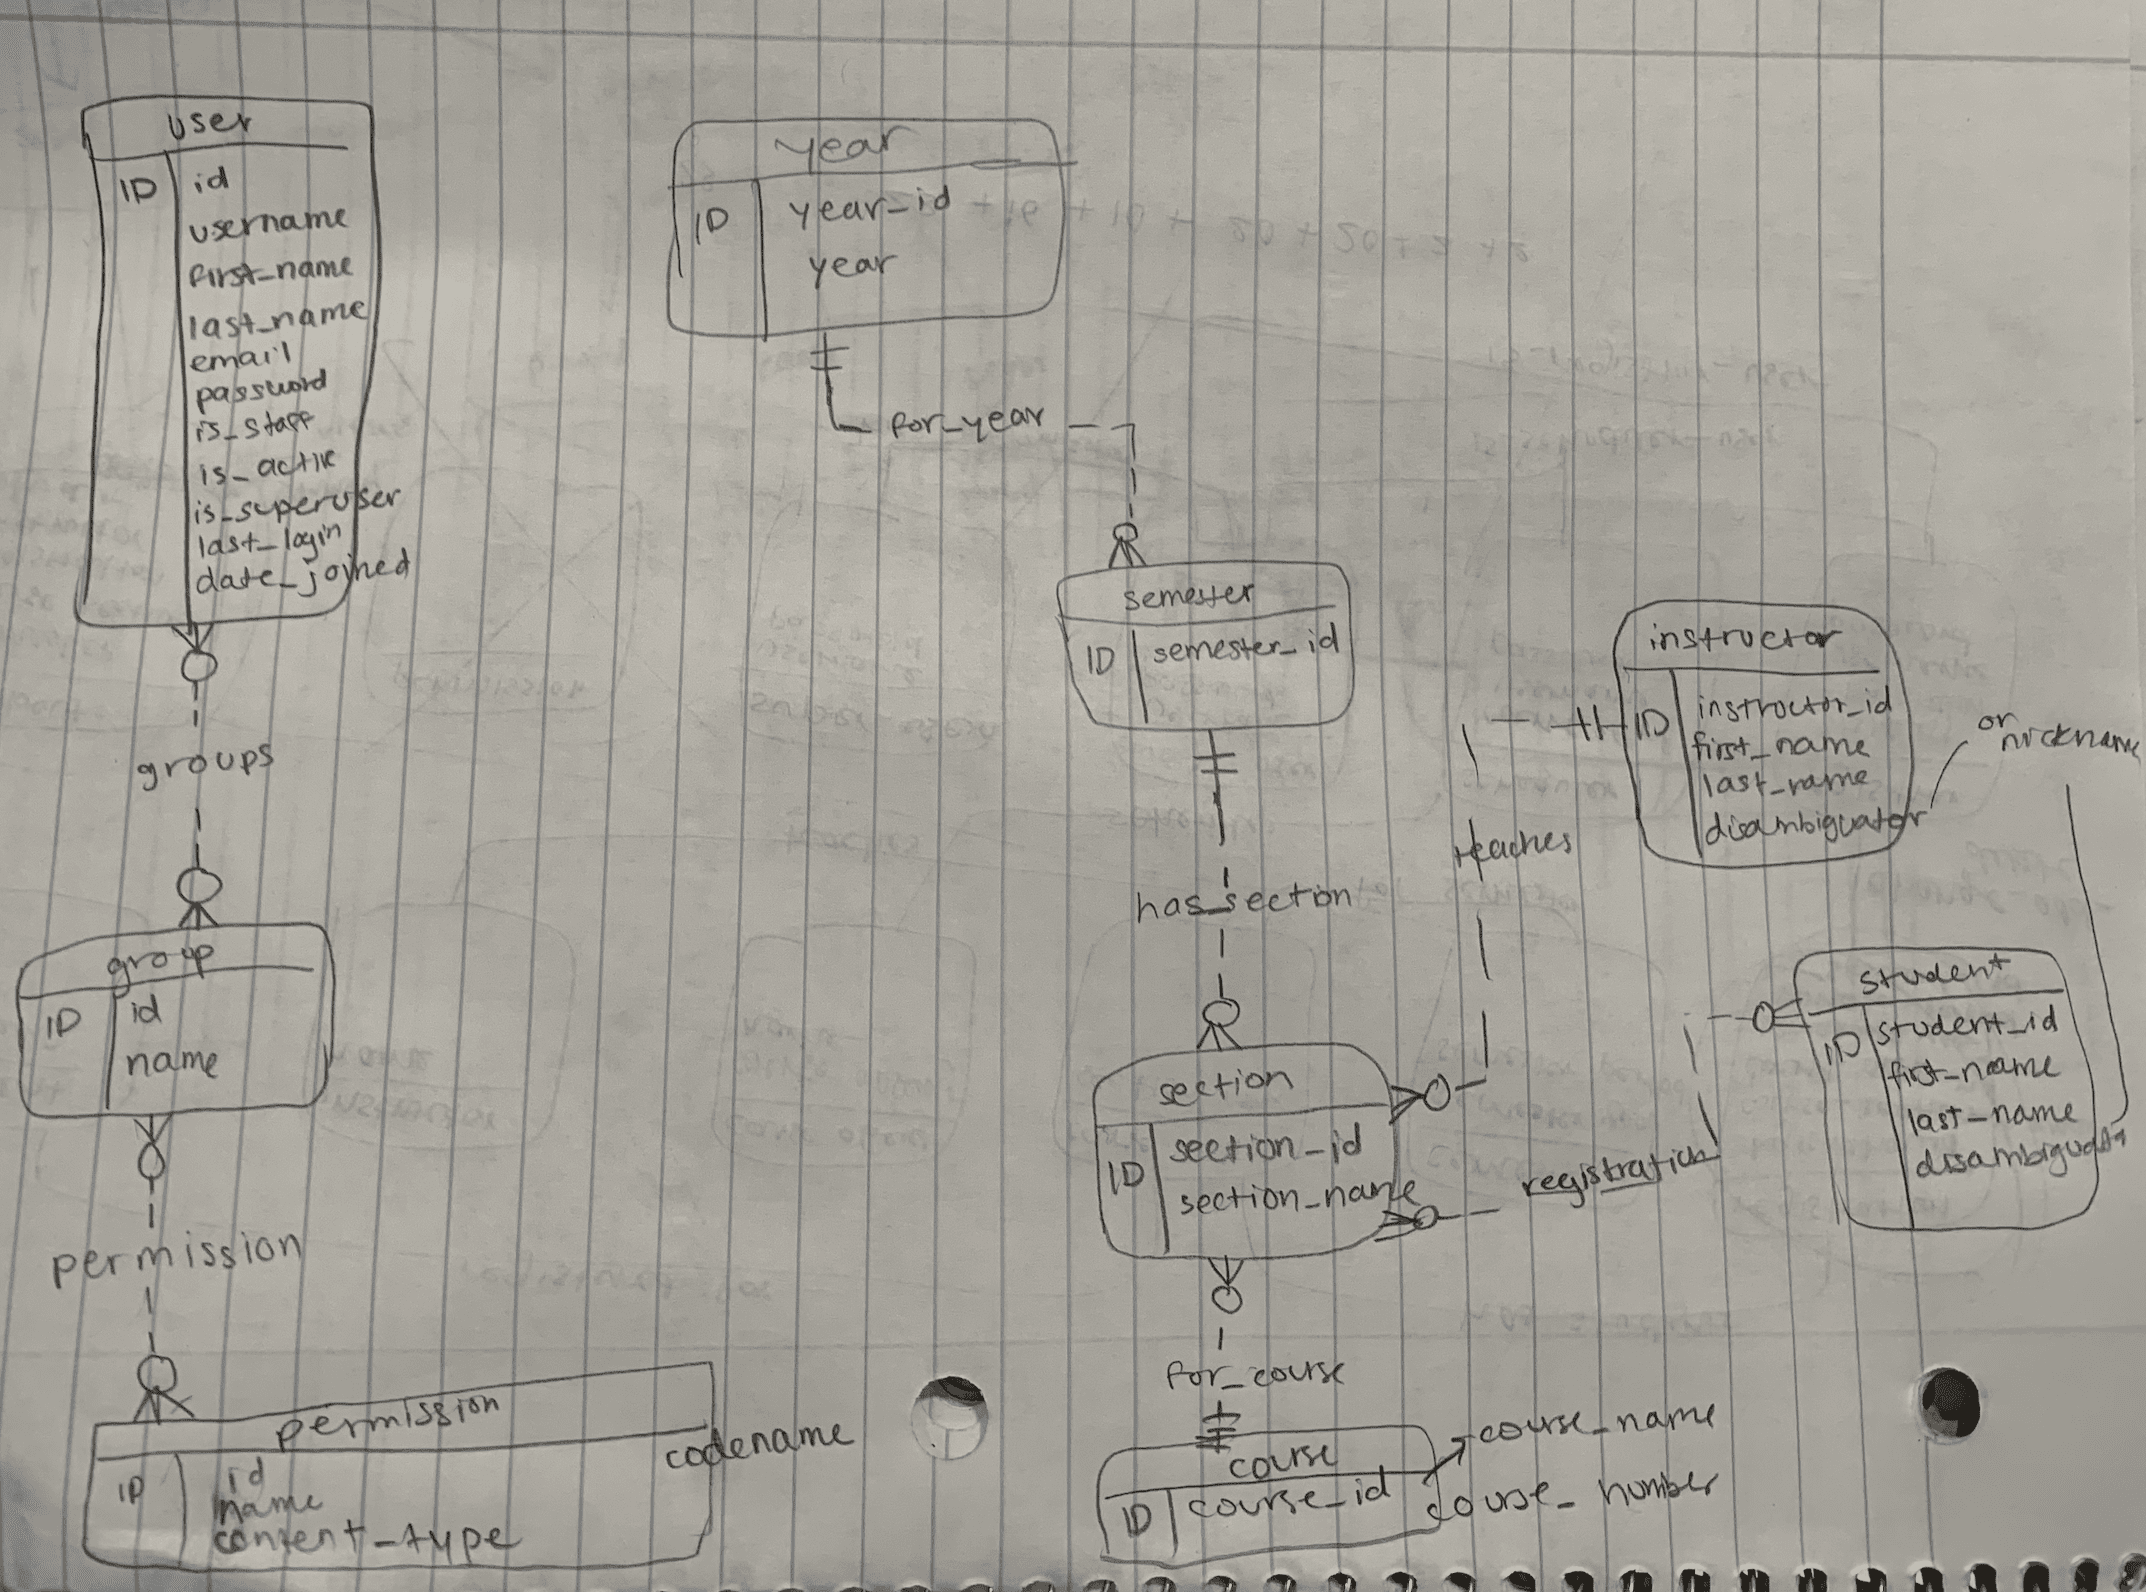 user
ID
id
username
first_name
last_name
email
password
is_staff
is_active
is_superuser
last_login
date_joined
groups
group
ID
id
name
permission
permission
ID
id
name
content_type
codename
year
ID
year_id
year
for_year
semester
ID
semester_id
has_section
section
ID
section_id
section_name
for_course
course
ID
course_id
course_name
course_number
teaches
instructor
ID
instructor_id
first_name
last_name
disambiguator
or
nickname
registration
student
ID
student_id
first_name
last_name